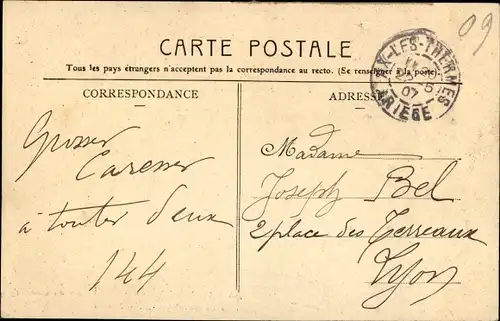 09
CARTE POSTALE
Tous les pays étrangers n'acceptent pas la correspondance au recto. (Se renseigner à la poste)
CORRESPONDANCE
ADRESSE
AX-LES-THERMES
07
ARIÈGE
Grosses
Caresses
à toutes deux
144
Madame
Joseph Bel
2 place des Terreaux
Lyon